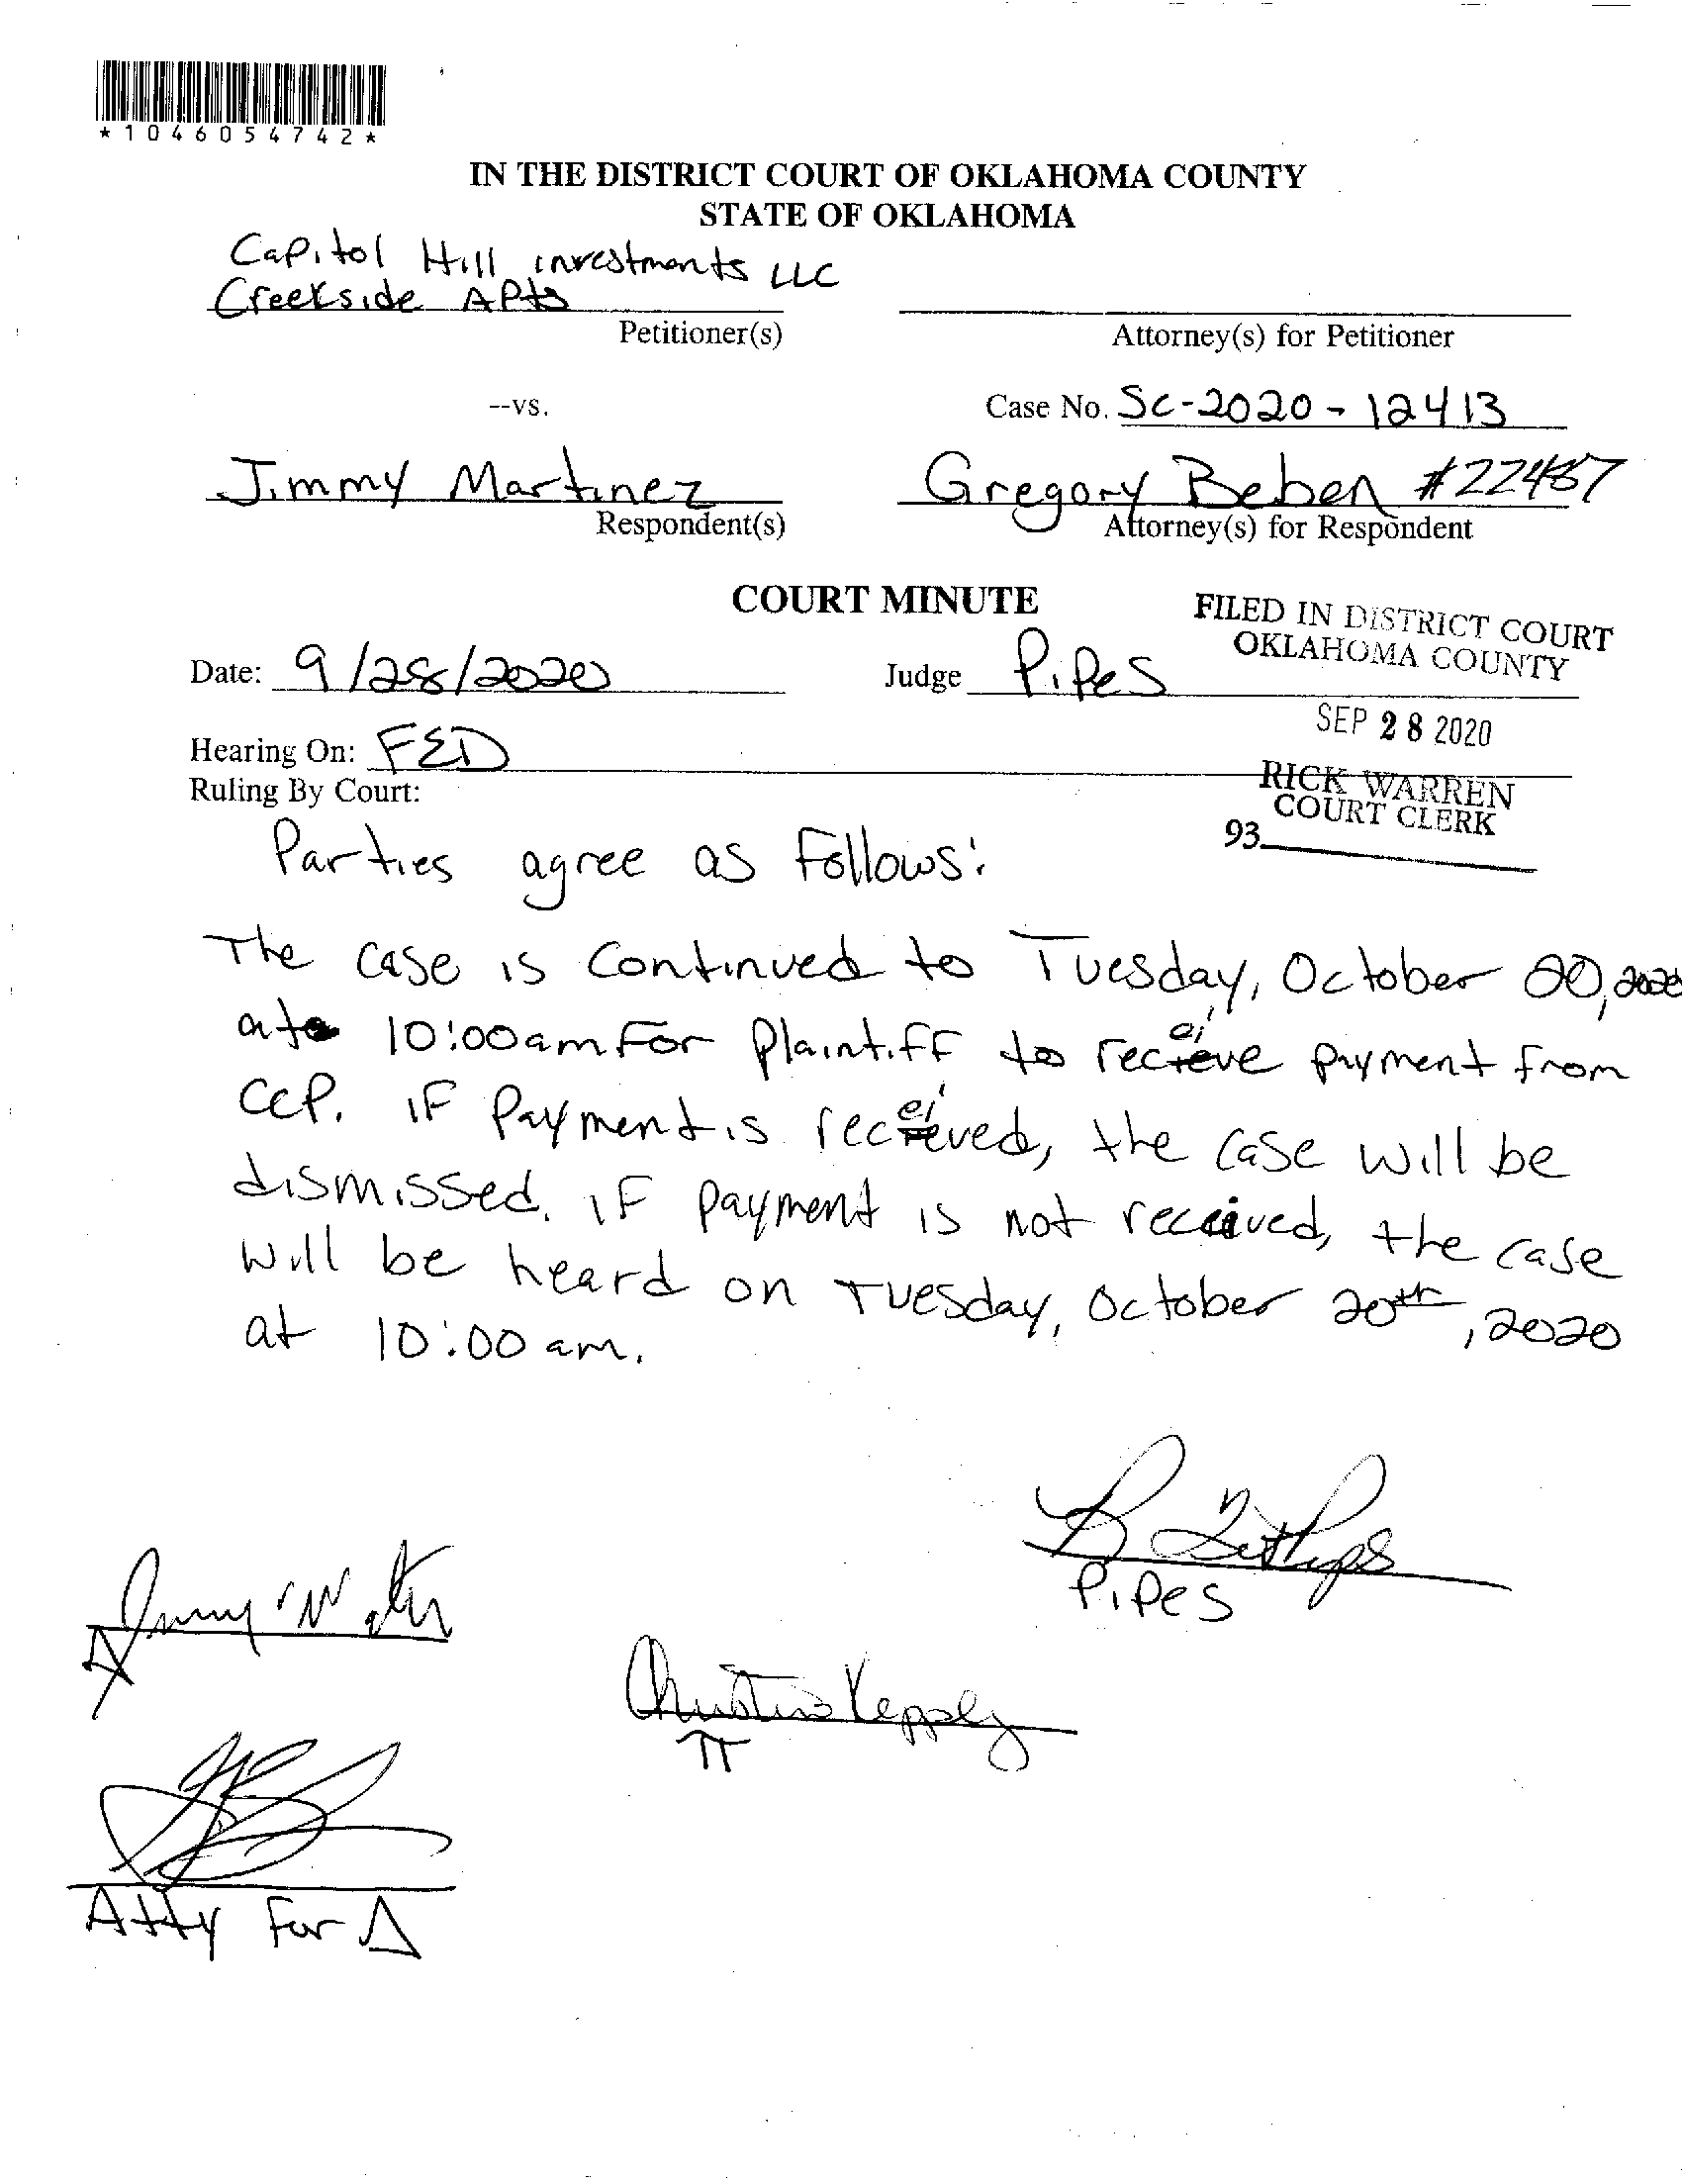 *1046054742*
IN THE DISTRICT COURT OF OKLAHOMA COUNTY
STATE OF OKLAHOMA
Capitol Hill investments LLC
Creekside Apts
Petitioner(s)
Attorney(s) for Petitioner
--vs.
Case No. SC-2020-12413
Jimmy Martinez
Respondent(s)
Gregory Beben #22487
Attorney(s) for Respondent
COURT MINUTE
FILED IN DISTRICT COURT
OKLAHOMA COUNTY
Date: 9/28/2020
Judge Pipes
SEP 28 2020
Hearing On: FED
RICK WARREN
COURT CLERK
93
Ruling By Court:
Parties agree as follows:
The case is continued to Tuesday, October 20, 2020
at 10:00am for Plaintiff to receive payment from
CCP. if Payment is received, the case will be
dismissed. if payment is not received, the case
will be heard on Tuesday, October 20th, 2020
at 10:00 am.
Pipes
Δ
π
Atty for Δ